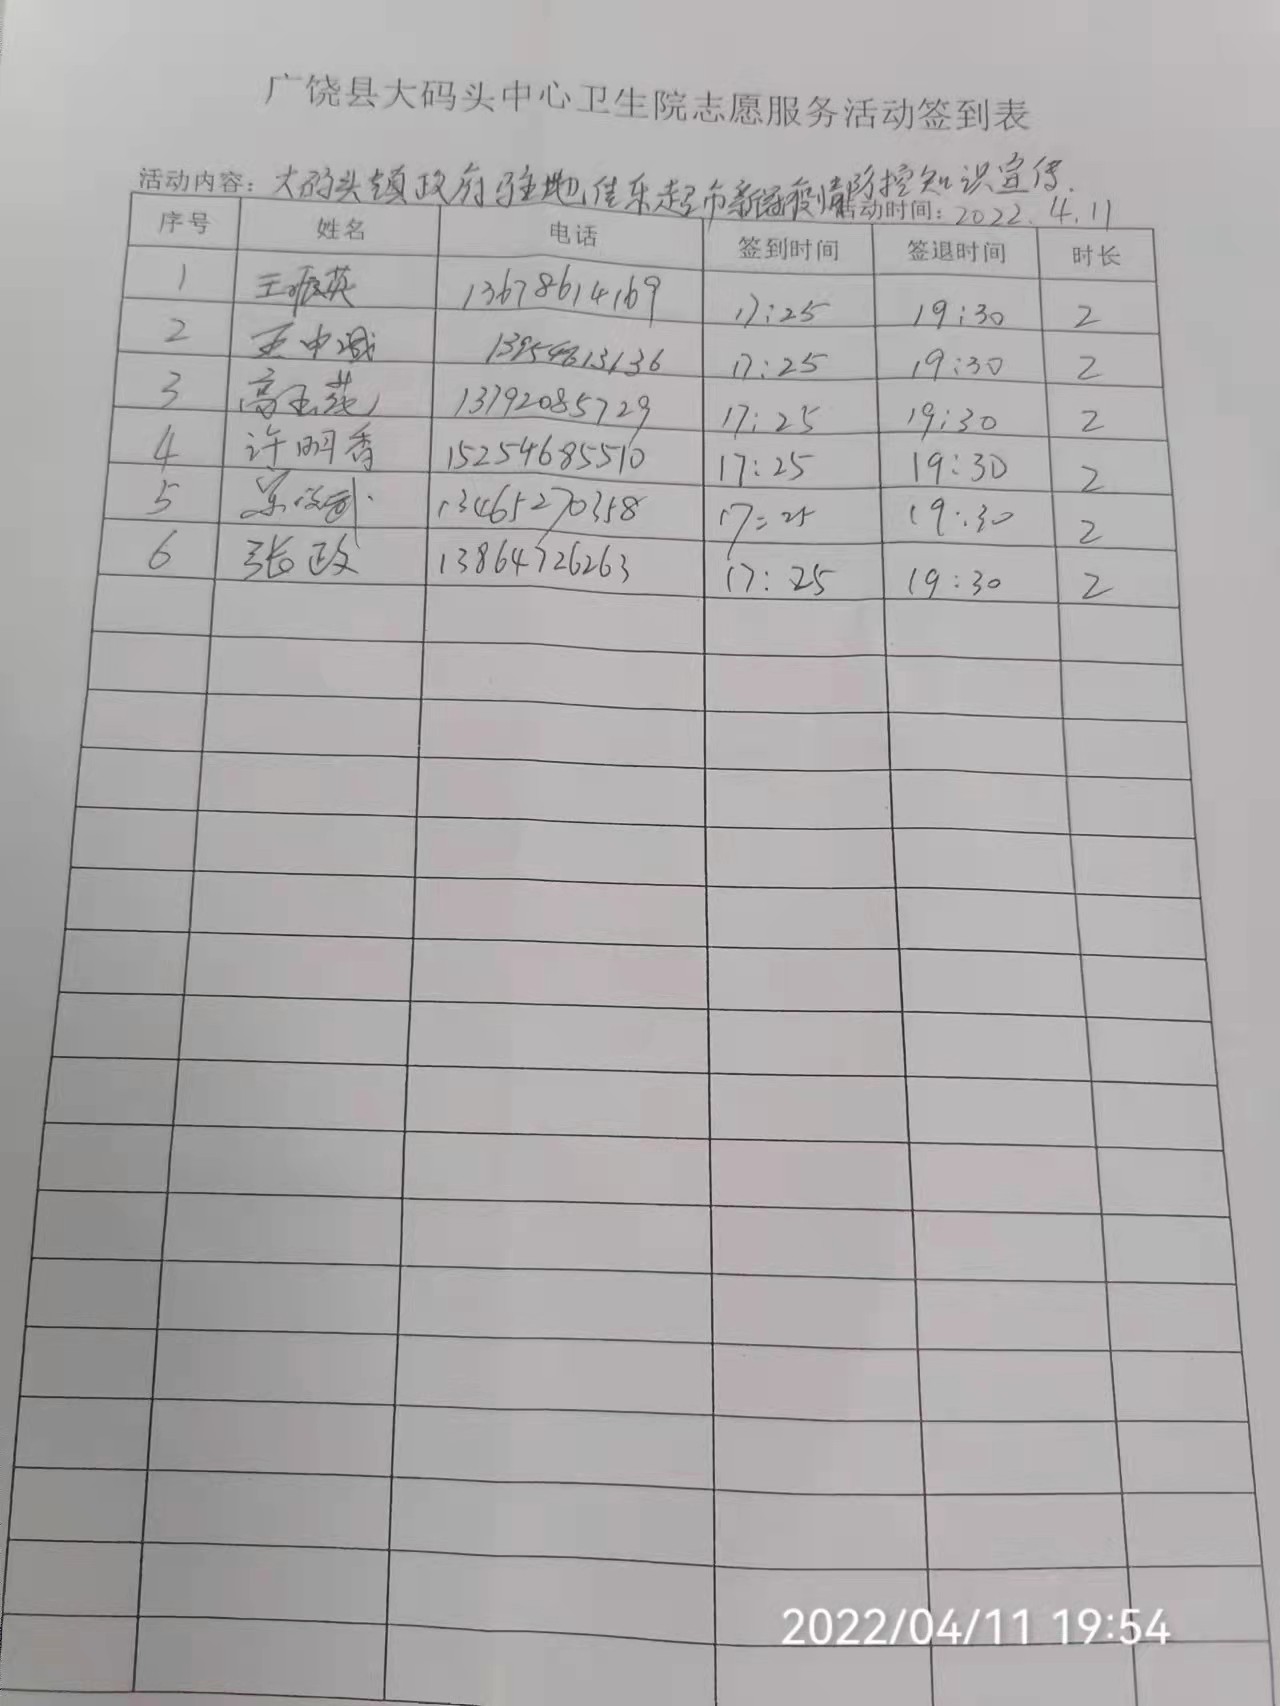 广饶县大码头中心卫生院志愿服务活动签到表
活动内容：大码头镇政府驻地佳乐超市新冠疫情防控知识宣传.
活动时间：2022.4.11
序号 姓名 电话 签到时间 签退时间 时长
1 王振英 13678614169 17:25 19:30 2
2 13954613136 17:25 19:30 2
3 高玉燕 13792085729 17:25 19:30 2
4 许明香 15254685510 17:25 19:30 2
5 13465270358 17:25 19:30 2
6 张政 13864726263 17:25 19:30 2
2022/04/11 19:54